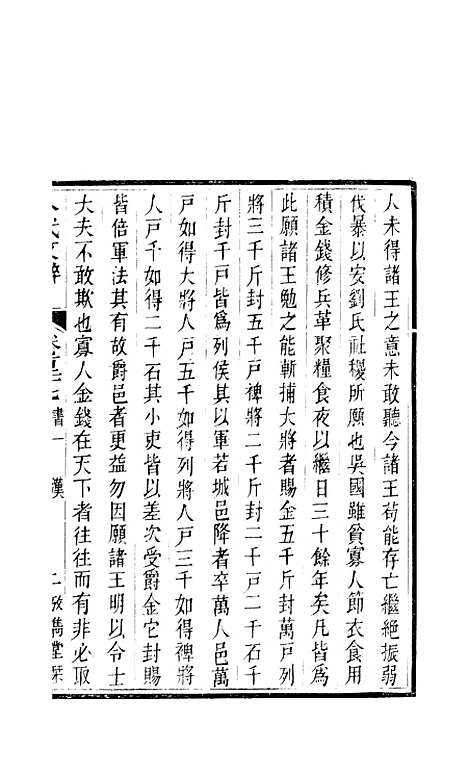 人未得諸王之意未敢聽今諸王苟能存亡繼絶振弱
伐暴以安劉氏社稷所願也吳國雖貧寡人節衣食用
積金錢修兵革聚糧食夜以繼日三十餘年矣凡皆爲
此願諸王勉之能斬捕大將者賜金五千斤封萬戸列
將三千斤封五千戸裨將二千斤封二千戸二千石千
斤封千戸皆爲列侯其以軍若城邑降者卒萬人邑萬
戸如得大將人戸五千如得列將人戸三千如得裨將
人戸千如得二千石其小吏皆以差次受爵金它封賜
皆倍軍法其有故爵邑者更益勿因願諸王明以令士
大夫不敢欺也寡人金錢在天下者往往而有非必取
書一 漢 二